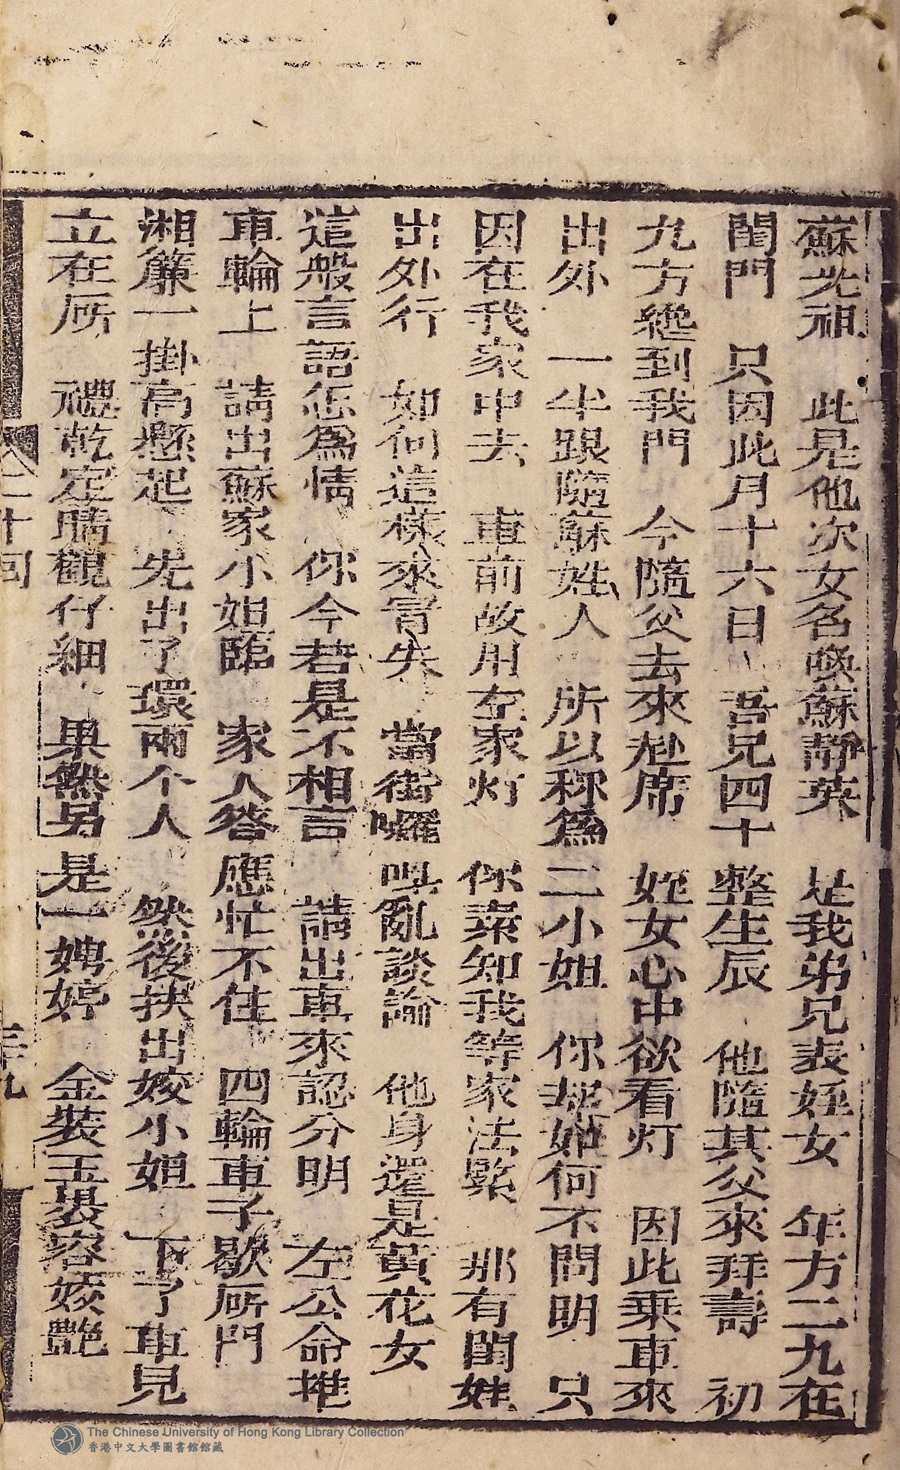 蘇光祖　此是他次女名喚蘇靜英　是我弟兄表姪女　年方二九在
閨門　只因此月十六日　吾兄四十整生辰　他隨其父來拜壽　初
九方纔到我門　今隨父去來赴席　姪女心中欲看灯　因此乘車來
出外　一半跟隨蘇姓人　所以称為二小姐　你却如何不問明　只
因在我家中去　車前故用左家灯　你素知我等家法嚴　那有閨娃
出外行　如何這樣來冒失　當街囉唣亂談論　他身還是黃花女
這般言語怎為情　你今若是不相言　請出車來認分明　左公命推
車輪上　請出蘇家小姐臨　家人答應忙不住　四輪車子歇厛門
湘簾一掛高懸起　先出了環兩个人　然後扶出姣小姐　下了車見
立在厛　禮乾定睛觀仔細　果然另是一娉婷　金裝玉裹容姣艷
二十回
三九
The Chinese University of Hong Kong Library Collection
香港中文大學圖書館館藏